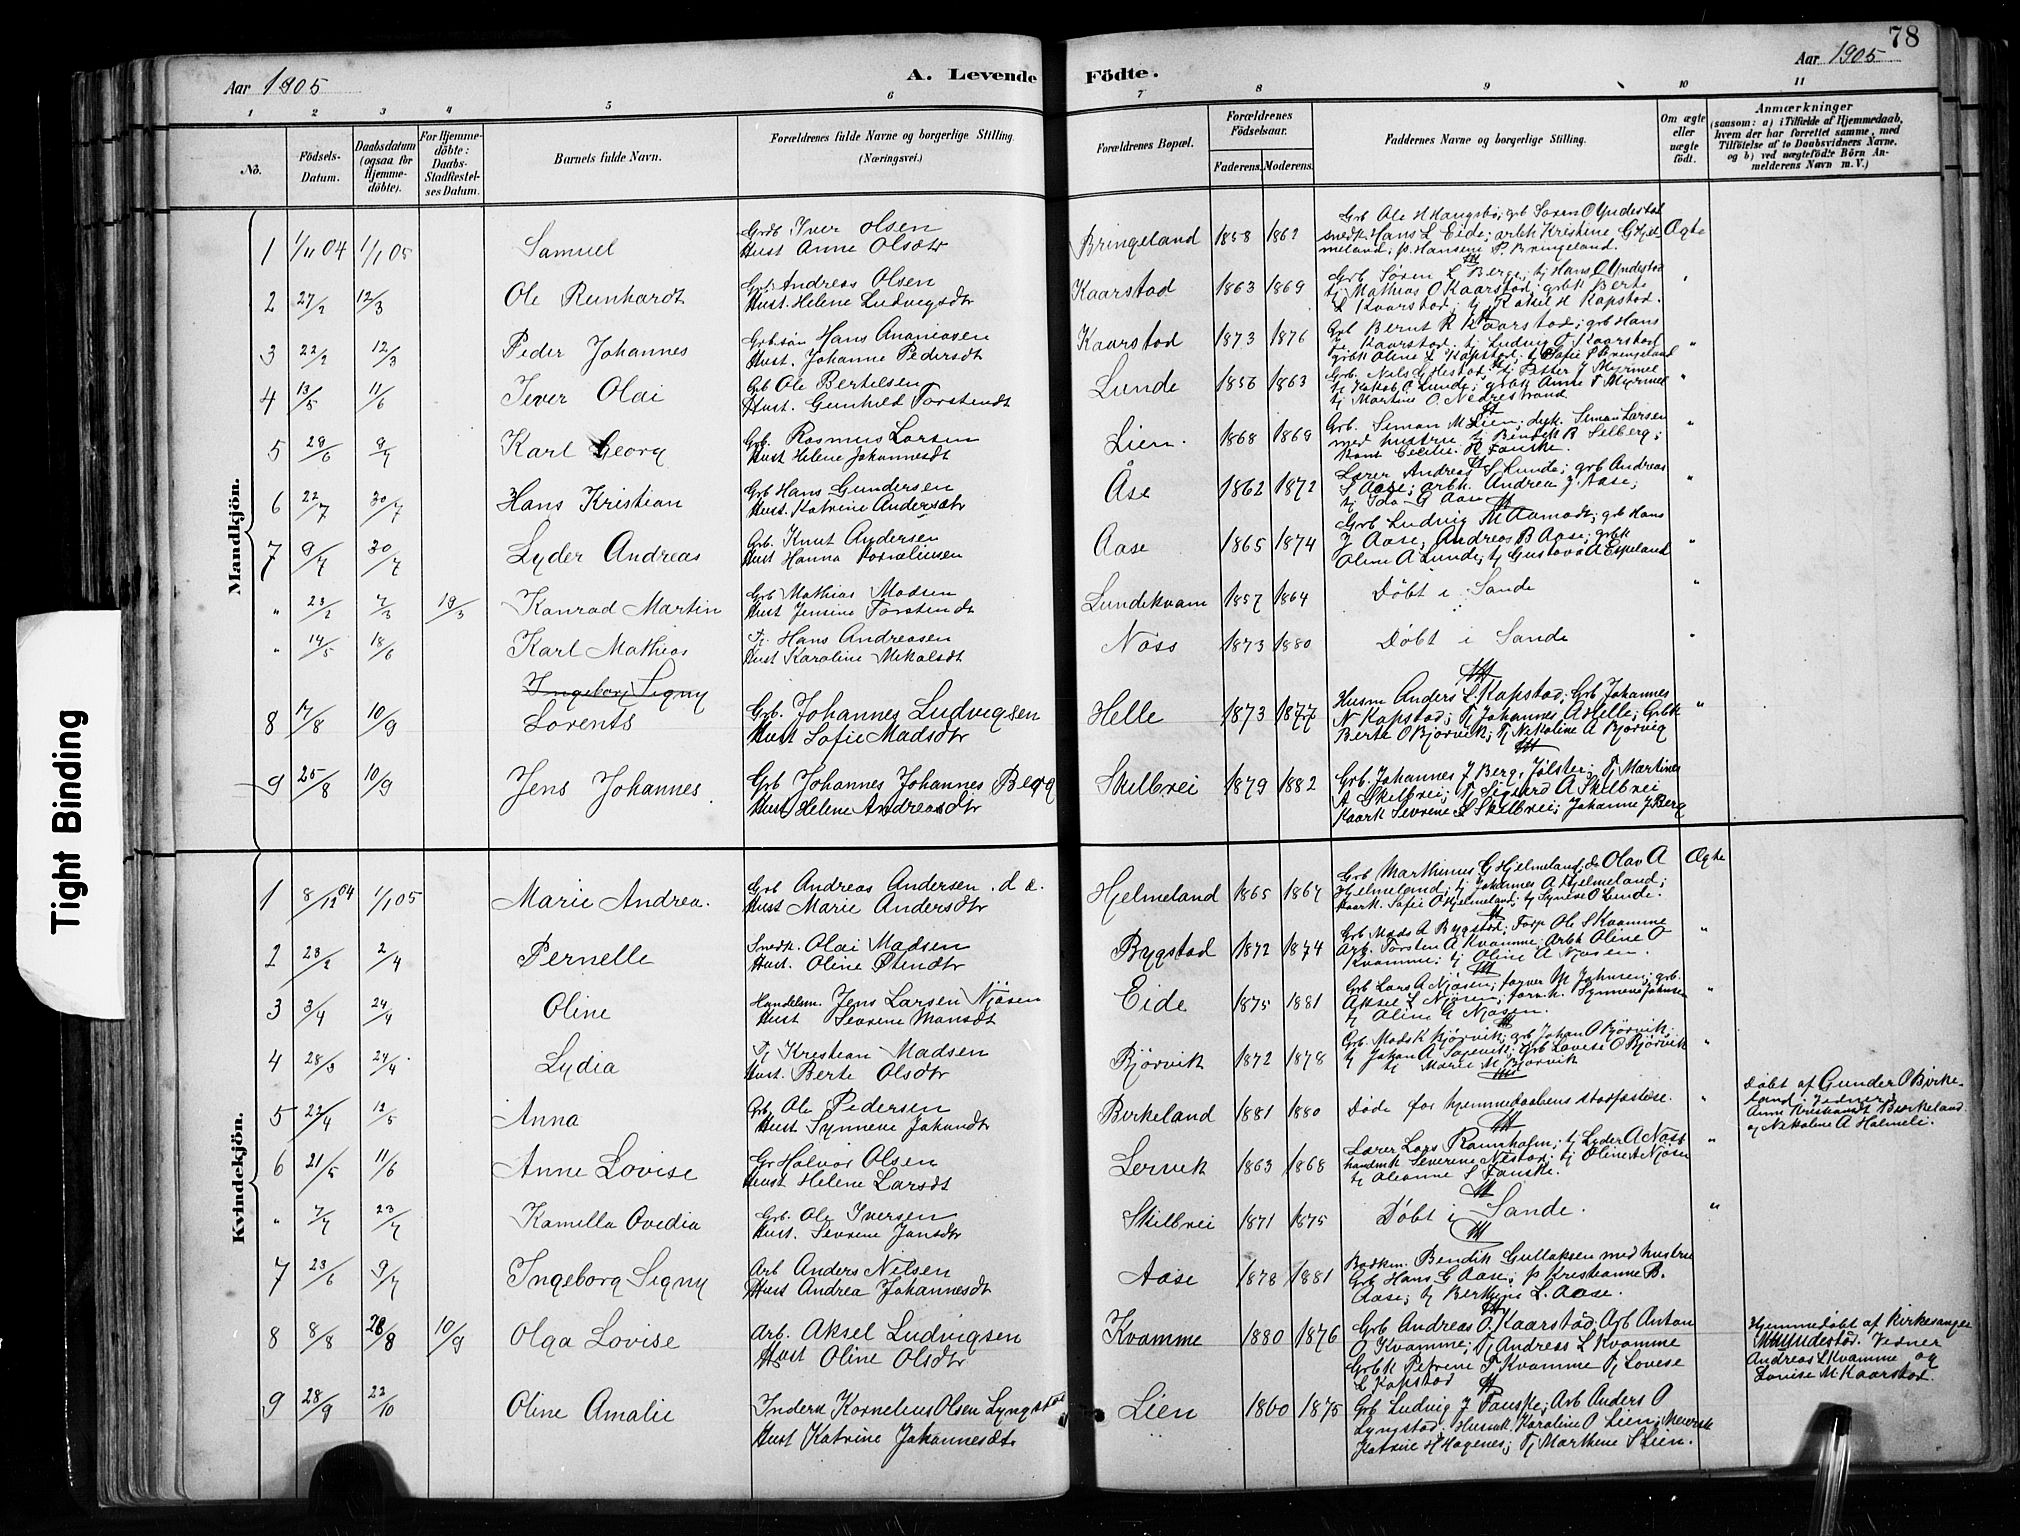 78
Aar 1905
A. Levende Födte.
Aar 1905
1 2 3 4 5 6 7 8 9 10 11
No.
Födsels-Datum.
Daabsdatum (ogsaa for Hjemme-döbte).
For Hjemme-döbte: Daabs-Stadfæstel-ses Datum.
Barnets fulde Navn.
Forældrenes fulde Navne og borgerlige Stilling. (Næringsvei.)
Forældrenes Bopæl.
Forældrenes Födselsaar.
Faderens. Moderens.
Faddernes Navne og borgerlige Stilling.
Om ægte eller uægte födt.
Anmærkninger
(saasom: a) i Tilfælde af Hjemmedaab, hvem der har forrettet samme, med Tilföielse af to Daabsvidners Navne. og b) ved uægtefödte Börn An-melderens Navn m. V.)
Mandkjön.
1 1/11 04 1/1 05 Samuel Grdb Iver Olsen Hust Anne Olsdtr Bringeland 1858 1862 Grb Ole H Haugsbø; grb Søren O Yndestad snedk Hans L Eide; arbk Kristine G Hjelmeland; p. Hansine P. Bringeland. Ægte
2 27/2 12/3 Ole Reinhardt Grb Andreas Olsen Hust Helene Ludvigsdtr Kaarstad 1863 1869 Grb Søren L Berge; tj Hans O Yndestad tj Mathias O Kaarstad; grbk Berte L Kaarstad; tj Rakel H Kapstad. "
3 22/2 12/3 Peder Johannes Grbsøn Hans Ananiasen Hust. Johanne Pedersdt Kaarstad 1873 1876 Grb Bernt R Kaarstad; grb Hans Kaarstad; tj Ludvig O Kaarstad grbk Oline L Kapstad; tj Sofie P Bringeland "
4 13/5 11/6 Iver Olai Grb Ole Bertelsen Hust. Gunhild Torstendt Lunde 1856 1863 Grb. Nils G Hestad; tj Petter J Myrmel tj Jakob O Lunde; grbk Anne T Myrmel tj Martine O. Nedrestrand "
5 29/6 9/7 Karl Georg Grb. Rasmus Larsen Hust Helene Johannesdt Lien. 1868 1869 Grb. Simon M Lien; Simon Larsen med hustru tj Bendik B Selberg; Cecilie R Fauske. "
6 22/7 30/7 Hans Kristian Grb Hans Gundersen Hust. Katrine Andersdtr Åse 1862 1872 Lærer Andreas S Lunde; grb Andreas S Aase; arbk. Andrea J Aase; tj Ida G Aase "
7 9/7 30/7 Lyder Andreas Grb. Knut Andersen Hust Hanna Korneliusen Aase 1865 1874 Grb Ludvig M Aamodt; grb Hans J Aase; Andreas B Aase; grbk Oline A Lunde; tj Gustava A Espeland "
" 23/2 7/3 19/3 Konrad Martin Grb Mathias Madsen Hust Jensine Torstendt Lundekvam 1857 1864 Døbt i Sande "
" 14/5 18/6 Karl Mathias Tj. Hans Andreasen Hust Karoline Mikalsdt Nøss 1873 1880 Døbt i Sande "
Ingeborg Signy
8 17/8 10/9 Lorents Grb. Johannes Ludvigsen Hust Sofie Madsdtr Helle 1873 1877 Husm Anders L. Kapstad; Grb Johannes N Kapstad; Tj Johannes A Helle; Grbk Berte O Bjørvik; Tj Nikoline A Bjørvig "
9 25/8 10/9 Jens Johannes Grb Johannes Johannes Berg Hust Helene Andreasdtr Skilbrei 1879 1882 Grb. Johannes J Berg, Jølster; Tj Martines A Skilbrei; Tj Sigurd A Skilbrei Kaark Sevrine L Skilbrei; Johanne J Berg
Kvindekjön.
1 8/12 04 1/1 05 Marie Andrea. Grb Andreas Andersen d.e. Hust Marie Andersdtr Hjelmeland 1865 1864 Grb Marthinus G Hjelmeland; do Olav A Hjelmeland; tj Johannes A Hjelmeland; kaark. Sofie O Hjelmeland; tj Synneve O Lunde. Ægte
2 23/2 2/4 Pernelle Snedk. Olai Madsen Hust. Oline Østendtr Bygstad 1872 1874 Grb Mads A Bygstad; Forp Ole S Kvamme Arb. Torsten A Kvamme; Arbk Oline O Kvamme; tj Oline A Njøsen. "
3 3/4 24/4 Oline Handelsm. Jens Larsen Njøsen Hust Sevrine Monsdt Eide 1875 1881 Grb Lars A Njøsen; M Johnsen; grb. Aksel L Njøsen; Synneve Johnsen tj Oline G Njøsen. "
4 28/3 24/4 Lydia Tj Kristian Madsen Hust. Berte Olsdtr Bjørvik 1872 1878 Grb. Mads K Bjørvik; grb Johan O Bjørvik; tj Johan A Sørevik; Grb Lovise O Bjørvik tj Marie M Bjørvik "
5 22/4 12/5 Anna Grb Ole Pedersen Hust. Synneve Johandtr Birkeland 1881 1880 Døde før hjemmedaabens stadfæstelse. " Døbt af Gunder O Birkeland. Vidner: Anne Kristiandt Birkeland og Nikoline A Holmeli.
6 21/5 11/6 Anne Lovise Gr Halvor Olsen Hust Helene Larsdt Lervik 1863 1868 Lærer Lars Ramsholm; tj Lyder A Nøss handsk Severine Nestad; tj Oline A Njøsen tj Oleanne S Fauske. "
" 7/7 23/7 Kamilla Ovidia Grb. Ole Iversen Hust. Sevrine Jansdtr Skilbrei 1871 1875 Døbt i Sande. "
7 23/6 9/7 Ingeborg Signy Arb Anders Nilsen Hust Andrea Johannesdt Aase 1878 1881 Bødkm. Bendik Gullaksen med hustru Grb Hans G Aase; p Kristianne B. Aase; tj Berthine L. Aase.
8 8/8 28/8 10/9 Olga Lovise Arb. Aksel Ludvigsen Hust Oline Olsdtr Kvamme 1880 1876 Grb Andreas O. Kaarstad, Arb Anton O Kvamme; Tj Andreas L Kvamme Grbk Petrine T Kvamme Tj Lovise L Kapstad Hjemmedøbt af Kirkesanger Yndestad. Vidner Andreas L Kvamme og Lovise M Kaarstad.
9 28/9 22/10 Oline Amalie Inderst Kornelius Olsen Lyngstad Hust Katrine Johannesdtr Lien 1860 1875 Grb Ludvig J Fauske; Arb Anders O Lyngstad; Karoline O Lien; Katrine H Hagenes; Tj Marthine S Lien.
Tight Binding